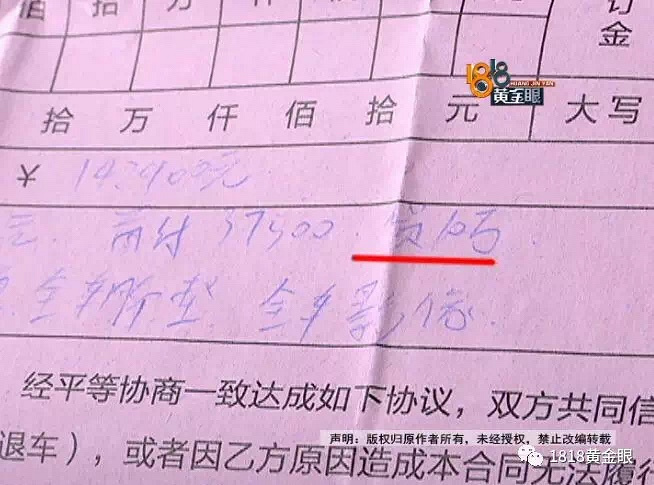 佰 拾 万 仟 佰 拾 元 订金
1818
HUANG JIN YAN
黄金眼
拾 万 仟 佰 拾 元 大写
¥ 142900元
首付37500.贷10.5万.
全车脚垫 全车影像.
经平等协商一致达成如下协议，双方共同信
声明：版权归原作者所有，未经授权，禁止改编转载
退车），或者因乙方原因造成本合同无法履行
1818黄金眼